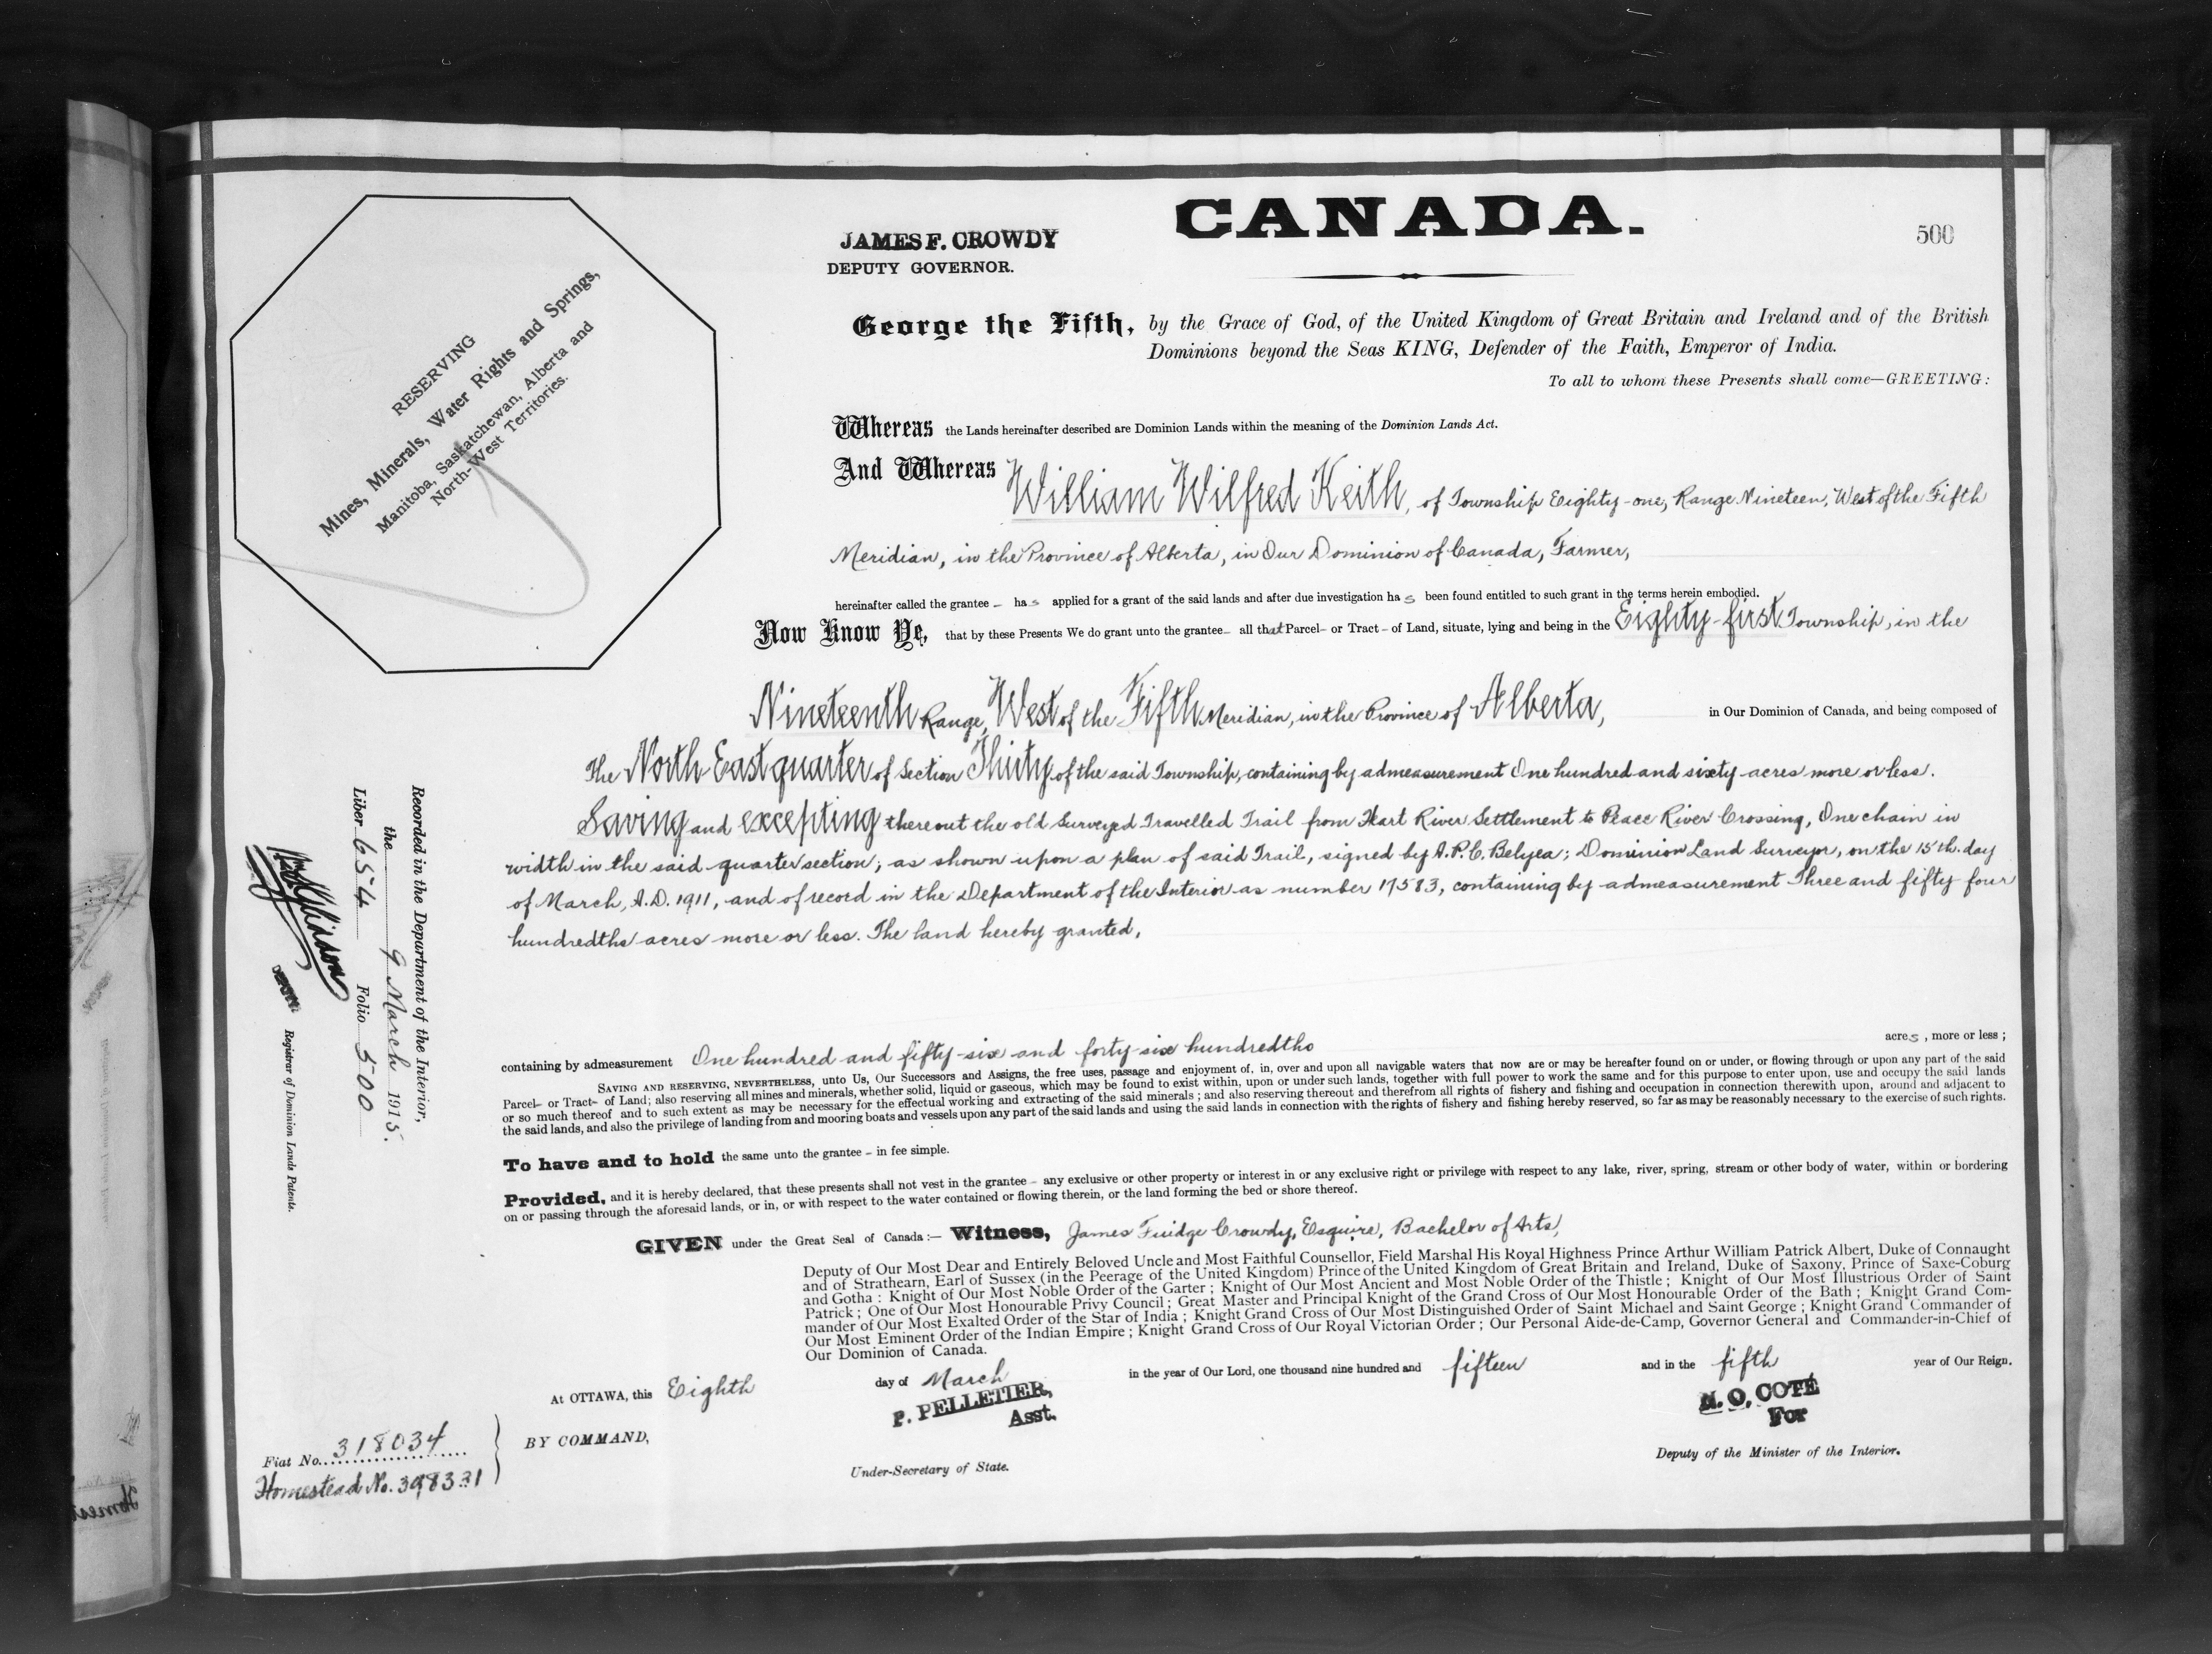 CANADA.
500
JAMES F. CROWDY
DEPUTY GOVERNOR.
RESERVING
Mines, Minerals, Water Rights and Springs,
Manitoba, Saskatchewan, Alberta and
North-West Territories.
George the Fifth, by the Grace of God, of the United Kingdom of Great Britain and Ireland and of the British
Dominions beyond the Seas KING, Defender of the Faith, Emperor of India.
To all to whom these Presents shall come—GREETING:
Whereas the Lands hereinafter described are Dominion Lands within the meaning of the Dominion Lands Act.
And Whereas William Wilfred Keith, of Township Eighty-one, Range Nineteen, West of the Fifth
Meridian, in the Province of Alberta, in Our Dominion of Canada, Farmer,
hereinafter called the grantee – has applied for a grant of the said lands and after due investigation has been found entitled to such grant in the terms herein embodied.
Now Know Ye, that by these Presents We do grant unto the grantee – all that Parcel – or Tract – of Land, situate, lying and being in the Eighty-first Township, in the
Nineteenth Range, West of the Fifth Meridian, in the Province of Alberta, in Our Dominion of Canada, and being composed of
The North East quarter of Section Thirty of the said Township, containing by admeasurement One hundred and sixty acres more or less.
Saving and excepting thereout the old Surveyed Travelled Trail from Hart River Settlement to Peace River Crossing, One chain in
width in the said quarter section, as shown upon a plan of said Trail, signed by A.P.C. Belyea; Dominion Land Surveyor, on the 15th. day
of March, A.D. 1911, and of record in the Department of the Interior as number 17583, containing by admeasurement Three and fifty four
hundredths acres more or less. The land hereby granted,
containing by admeasurement One hundred and fifty-six and forty-six hundredths acres, more or less;
SAVING AND RESERVING, NEVERTHELESS, unto Us, Our Successors and Assigns, the free uses, passage and enjoyment of, in, over and upon all navigable waters that now are or may be hereafter found on or under, or flowing through or upon any part of the said
Parcel – or Tract – of Land; also reserving all mines and minerals, whether solid, liquid or gaseous, which may be found to exist within, upon or under such lands, together with full power to work the same and for this purpose to enter upon, use and occupy the said lands
or so much thereof and to such extent as may be necessary for the effectual working and extracting of the said minerals; and also reserving thereout and therefrom all rights of fishery and fishing and occupation in connection therewith upon, around and adjacent to
the said lands, and also the privilege of landing from and mooring boats and vessels upon any part of the said lands and using the said lands in connection with the rights of fishery and fishing hereby reserved, so far as may be reasonably necessary to the exercise of such rights.
To have and to hold the same unto the grantee – in fee simple.
Provided, and it is hereby declared, that these presents shall not vest in the grantee – any exclusive or other property or interest in or any exclusive right or privilege with respect to any lake, river, spring, stream or other body of water, within or bordering
on or passing through the aforesaid lands, or in, or with respect to the water contained or flowing therein, or the land forming the bed or shore thereof.
GIVEN under the Great Seal of Canada:— Witness, James Fuidge Crowdy, Esquire, Bachelor of Arts,
Deputy of Our Most Dear and Entirely Beloved Uncle and Most Faithful Counsellor, Field Marshal His Royal Highness Prince Arthur William Patrick Albert, Duke of Connaught
and of Strathearn, Earl of Sussex (in the Peerage of the United Kingdom) Prince of the United Kingdom of Great Britain and Ireland, Duke of Saxony, Prince of Saxe-Coburg
and Gotha: Knight of Our Most Noble Order of the Garter; Knight of Our Most Ancient and Most Noble Order of the Thistle; Knight of Our Most Illustrious Order of Saint
Patrick; One of Our Most Honourable Privy Council; Great Master and Principal Knight of the Grand Cross of Our Most Honourable Order of the Bath; Knight Grand Com-
mander of Our Most Exalted Order of the Star of India; Knight Grand Cross of Our Most Distinguished Order of Saint Michael and Saint George; Knight Grand Commander of
Our Most Eminent Order of the Indian Empire; Knight Grand Cross of Our Royal Victorian Order; Our Personal Aide-de-Camp, Governor General and Commander-in-Chief of
Our Dominion of Canada.
At OTTAWA, this Eighth day of March in the year of Our Lord, one thousand nine hundred and fifteen and in the fifth year of Our Reign.
P. PELLETIER,
Asst.
N. O. COTÉ
For
BY COMMAND,
Under-Secretary of State.
Deputy of the Minister of the Interior.
Fiat No. 318034
Homestead No. 398331
Recorded in the Department of the Interior,
the 9 March 1915.
Liber 654 Folio 500
DEPUTY Registrar of Dominion Lands Patents.